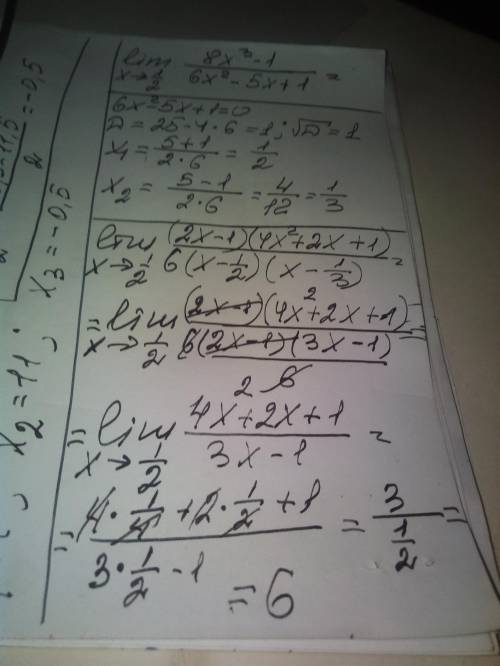 lim x→1/2 (8x³-1)/(6x²-5x+1) =
6x²-5x+1=0
D = 25-4·6 = 1; √D = 1
x₁ = (5+1)/(2·6) = 1/2
x₂ = (5-1)/(2·6) = 4/12 = 1/3
lim x→1/2 ((2x-1)(4x²+2x+1))/(6(x-1/2)(x-1/3)) =
= lim x→1/2 ((2x-1)(4x²+2x+1))/(6(2x-1)(3x-1)/(2 6)) =
= lim x→1/2 (4x+2x+1)/(3x-1) =
= (4·1/4+2·1/2+1)/(3·1/2-1) = 3/(1/2) =
= 6
x₂ = 11; x₃ = -0,5
= -0,5